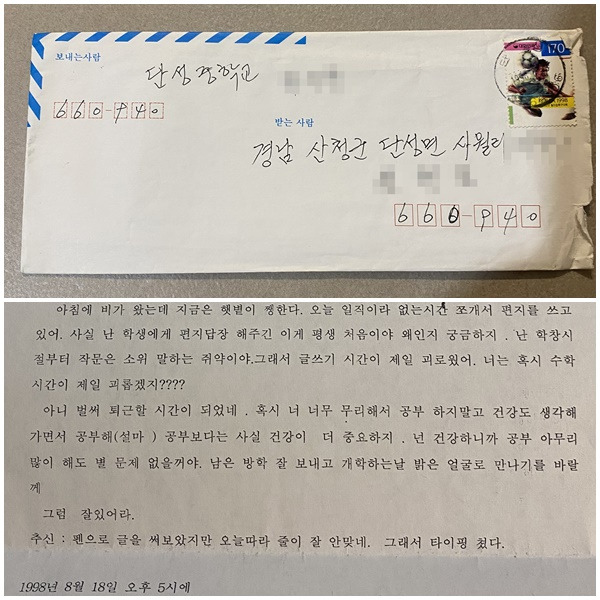 보내는사람
단성중학교
660-940
대한민국
170
받는 사람
경남 산청군 단성면 사월리
660-940
아침에 비가 왔는데 지금은 햇볕이 쨍한다. 오늘 일직이라 없는시간 쪼개서 편지를 쓰고
있어. 사실 난 학생에게 편지답장 해주긴 이게 평생 처음이야 왜인지 궁금하지 . 난 학창시
절부터 작문은 소위 말하는 쥐약이야.그래서 글쓰기 시간이 제일 괴로웠어. 너는 혹시 수학
시간이 제일 괴롭겠지????
아니 벌써 퇴근할 시간이 되었네 . 혹시 너 너무 무리해서 공부 하지말고 건강도 생각해
가면서 공부해(설마 ) 공부보다는 사실 건강이 더 중요하지 . 넌 건강하니까 공부 아무리
많이 해도 별 문제 없을꺼야. 남은 방학 잘 보내고 개학하는날 밝은 얼굴로 만나기를 바랄
께
그럼 잘있어라.
추신 : 펜으로 글을 써보았지만 오늘따라 줄이 잘 안맞네. 그래서 타이핑 쳤다.
1998년 8월 18일 오후 5시에